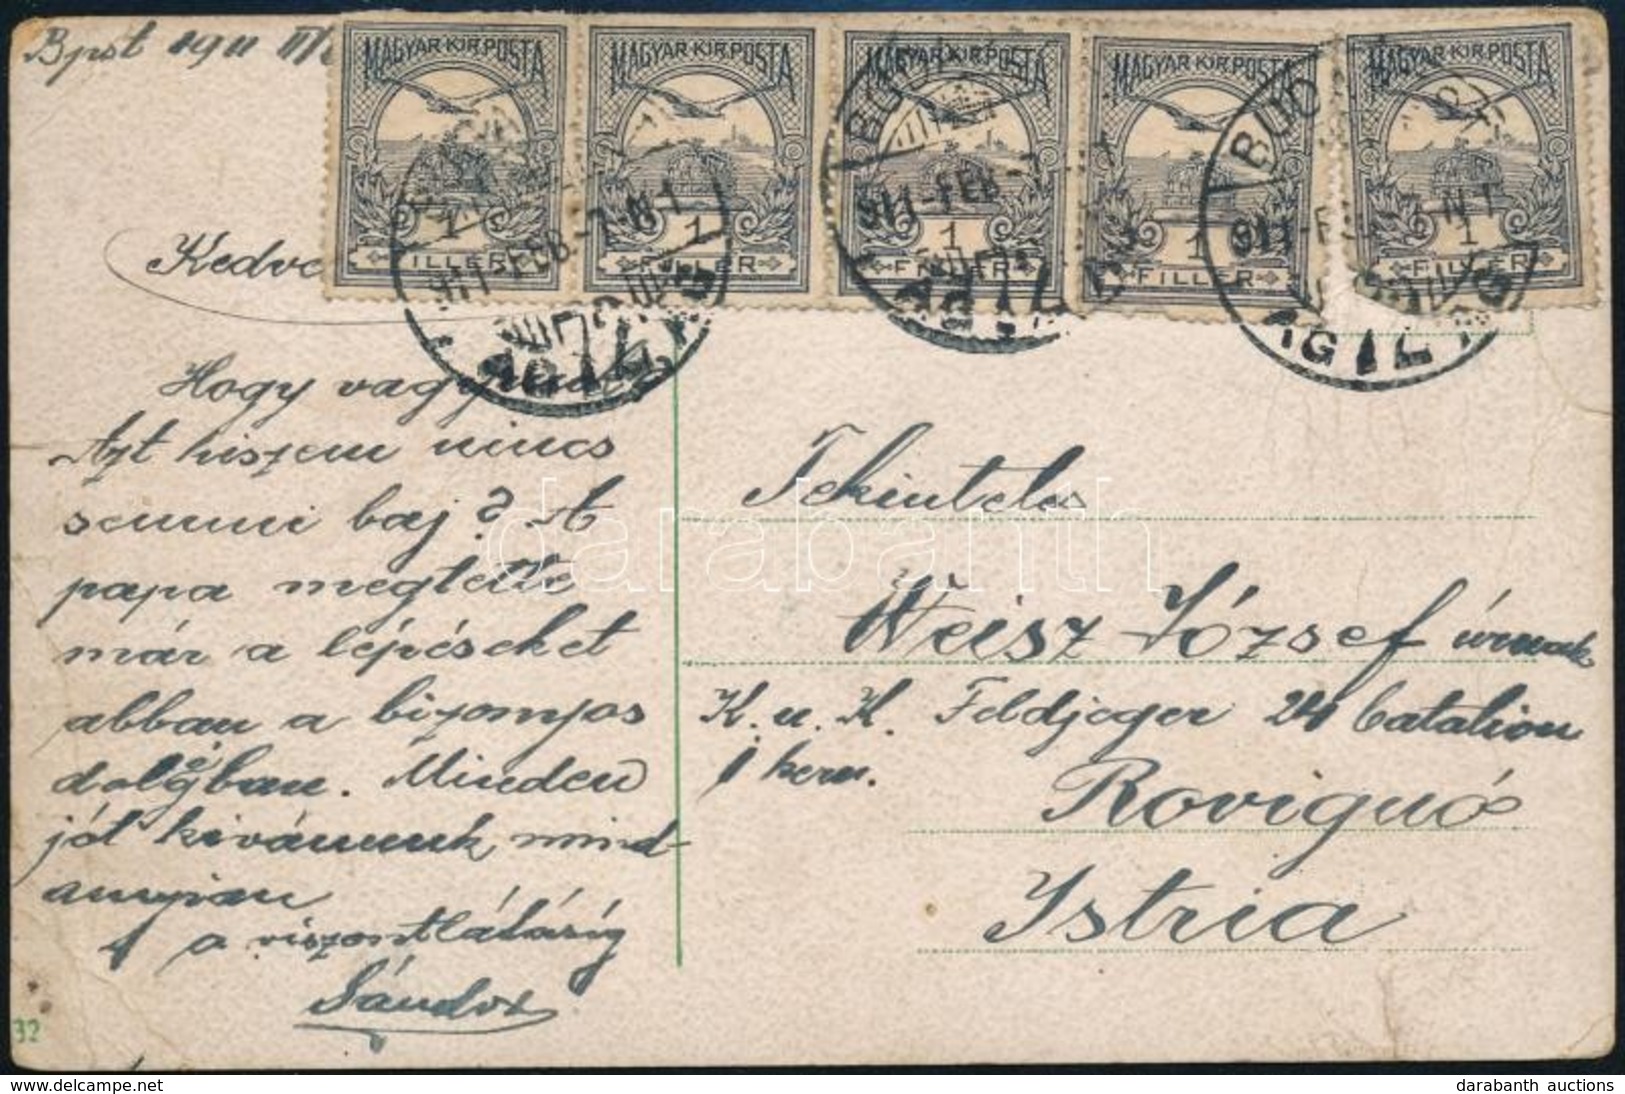 Bpest 1911 II/
MAGYAR KIR. POSTA
1
FILLÉR
MAGYAR KIR. POSTA
1
FILLÉR
MAGYAR KIR. POSTA
1
FILLÉR
MAGYAR KIR. POSTA
1
FILLÉR
MAGYAR KIR. POSTA
1
FILLÉR
911-FEB-7-N1
911-FEB-
BUD
911-F
N1
Kedve
Hogy vagy
Azt hiszem nincs
semmi baj? A
papa megtette
már a lépéseket
abban a bizonyos
dologban. Minden
jót kivánunk mind-
annyian
a viszontlátásig
Sándor
32
Tekintetes
Weisz József úrnak
K. u. K. Feldjeger 24 batalion
1 kom.
Roviguó
Istria
darabanth
darabanth auctions